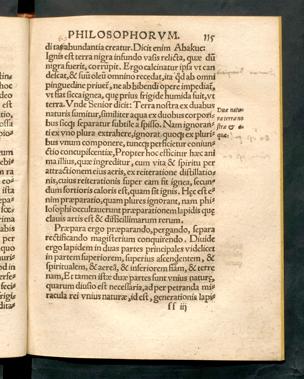 PHILOSOPHORVM. 115
di tas abundantia creatur. Dicit enim Abakuc:
Ignis est terra nigra infundo vasis relicta, quæ dũ
nigra fuerit, corrupit. Ergo calcinatur ipsa vt can
descat, & suũ oleũ omnino recedat, ita qđ ab omni
pinguedine priuet, ne ab bibendi opere impediat,
vt fiat sicca ignea, quæ prius frigide humida fuit, vt
terra. Vnde Senior dicit: Terra nostra ex duabus
naturis sumitur, similiter aqua ex duobus corpori
bus sicq; separatur subtile a spisso. Nam ignoran
ti ex vno plura extrahere, ignorat quoq; ex pluri
bus vnum componere, tuncq; perficitur coniun
ctio concupiscentiæ, Propter hoc efficitur hæc ani
ma illius, quæ ingreditur, cum vita & spiritu per
attractionem eius aeris, ex reiteratione distillatio
nis, cuius reiterationis super eam fit ignea, secun
dum fortioris caloris est, quam sit ignis. Hęc est e-
nim præparatio, quam plures ignorant, nam phi-
losophi occultauerunt præparationem lapidis quę
clauis artis est & difficillimarum rerum.
Præpara ergo præparando, pergando, separa
rectificando magisterium conquirendo. Diuide
ergo lapidem in duas partes principales videlicet
in partem superiorem, superius ascendentem, &
spiritualem, & aereã, & inferiorem fixam, & terre
nam, Et tamen istæ duæ partes sunt vnius naturę,
quarum diuisio est necessaria, ad per petranda mi-
racula rei vnius naturæ, id est, generationis lapi-
ff iij
Duæ natu-
ræ terra no
stræ & a-
quæ.